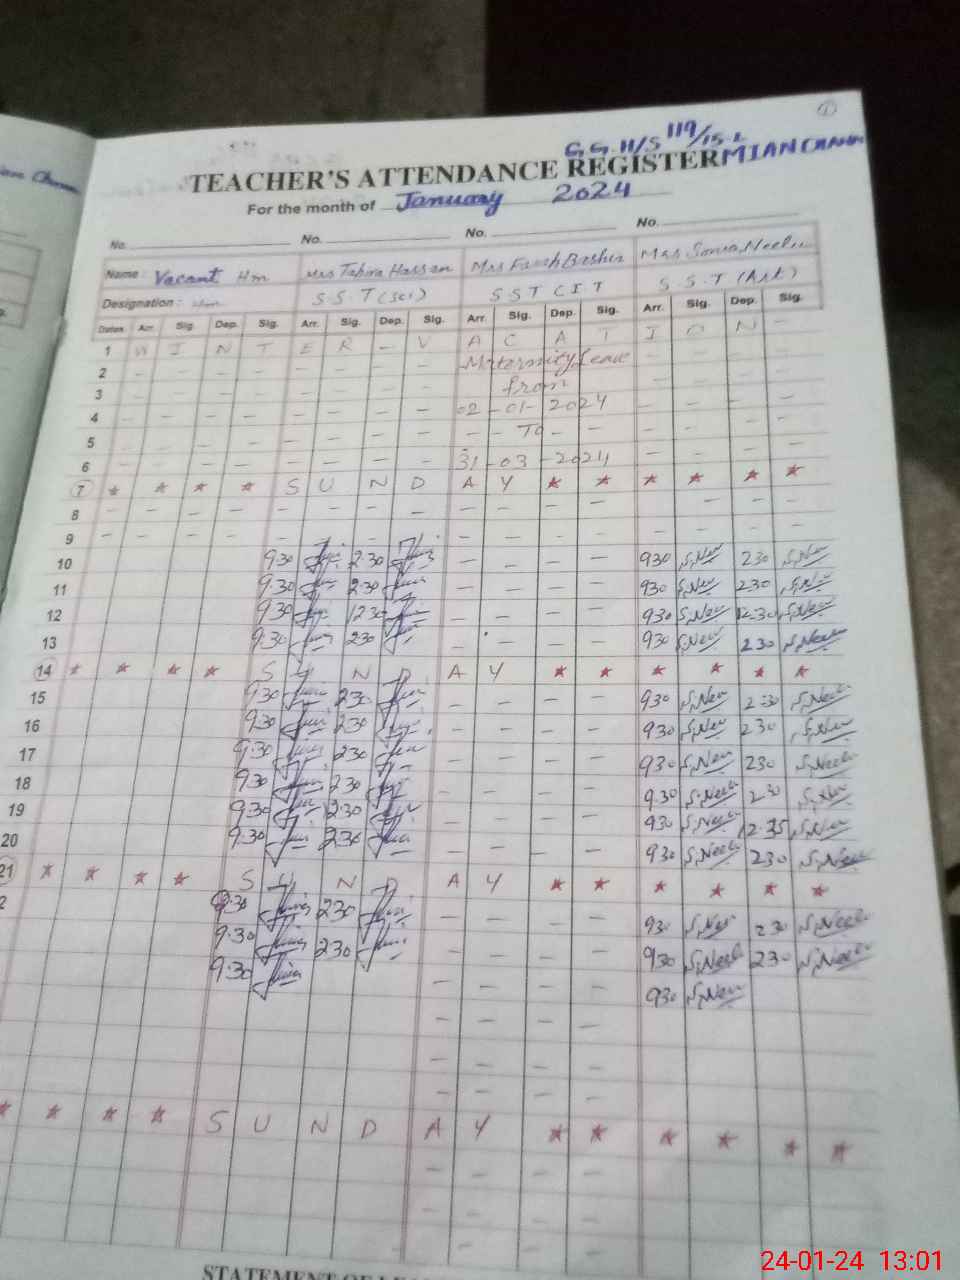 ①
G.G.H/S 119/15-L
TEACHER'S ATTENDANCE REGISTER MIAN CHANNU
For the month of January 2024
No. No. No. No.
Name: Vacant Hm Mrs Tahira Hassan Mrs Farah Bashir Mrs Sonia Neelu
Designation: S.S.T (Sci) SST CIT S.S.T (Art)
Dates Arr. Sig. Dep. Sig. Arr. Sig. Dep. Sig. Arr. Sig. Dep. Sig. Arr. Sig. Dep. Sig.
1 W I N T E R - V A C A T I O N -
2 - - - - - - - - Maternity Leave - - - -
3 - - - - - - - - from - - - -
4 - - - - - - - - 02-01-2024 - - - -
5 - - - - - - - - - To - - - - -
6 - - - - - - - - 31-03-2024 - - - -
7 * * * * S U N D A Y * * * * * *
8 - - - - - - - - - - - - - - -
9 - - - - - - - - - - - -
10 9.30 2.30 - - - - 930 S,Neu 230 S,Neu
11 9.30 2.30 - - - - 930 S,Neu 230 S,Neu
12 9.30 12.30 - - - - 930 S,Neu 12.30 S,Neu
13 9.30 230 - - - - 930 S,Neu 230 S,Neelu
14 * * * * S U N D A Y * * * * * *
15 9.30 230 - - - - 930 S,Neu 2.30 S,Neelu
16 9.30 230 - - - - 930 S,Neu 230 S,Neu
17 9.30 230 - - - - 930 S,Neu 230 S,Neelu
18 9.30 230 - - - - 9.30 S,Neelu 2.30 S,Neu
19 9.30 12.30 - - - - 930 S,Neelu 12.35 S,Neu
20 9.30 2.30 - - - - 930 S,Neelu 230 S,Neelu
21 * * * * S U N D A Y * * * * * *
2 9.30 230 - - - - 930 S,Neu 230 S,Neelu
9.30 230 - - - - 930 S,Neelu 230 S,Neelu
9.30 - - - - 930 S,Neu
- - - -
- - - -
- - - -
* * * * S U N D A Y * * * * * *
- - - -
- - - -
- - - -
STATEMENT OF
24-01-24 13:01